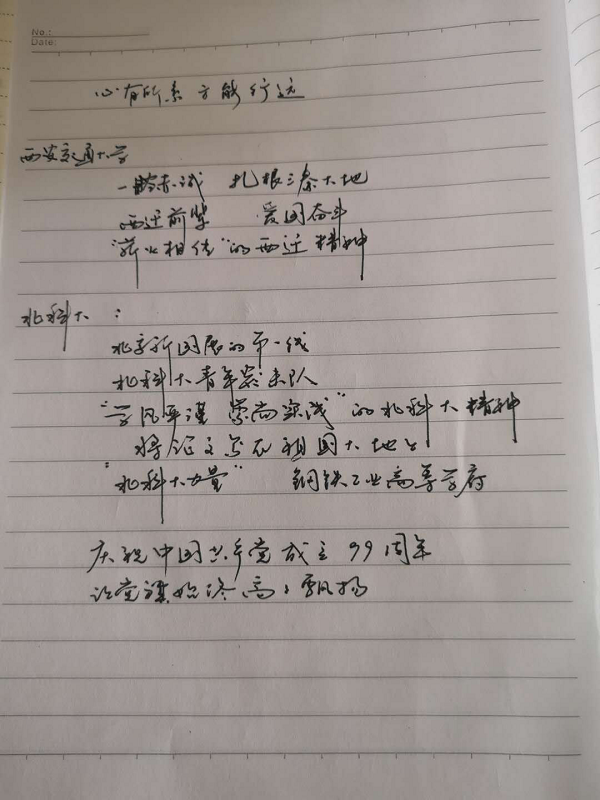 No.:
Date:
心有所系 方能行远
西安交通大学
一腔赤诚 扎根三秦大地
西迁前辈 爱国奋斗
"薪火相传"的西迁精神
北科大：
北京新国展的第一线
北科大青年突击队
"学风严谨 崇尚实践"的北科大精神
将论文写在祖国大地上
"北科大力量" 钢铁工业高等学府
庆祝中国共产党成立99周年
让党旗始终高高飘扬